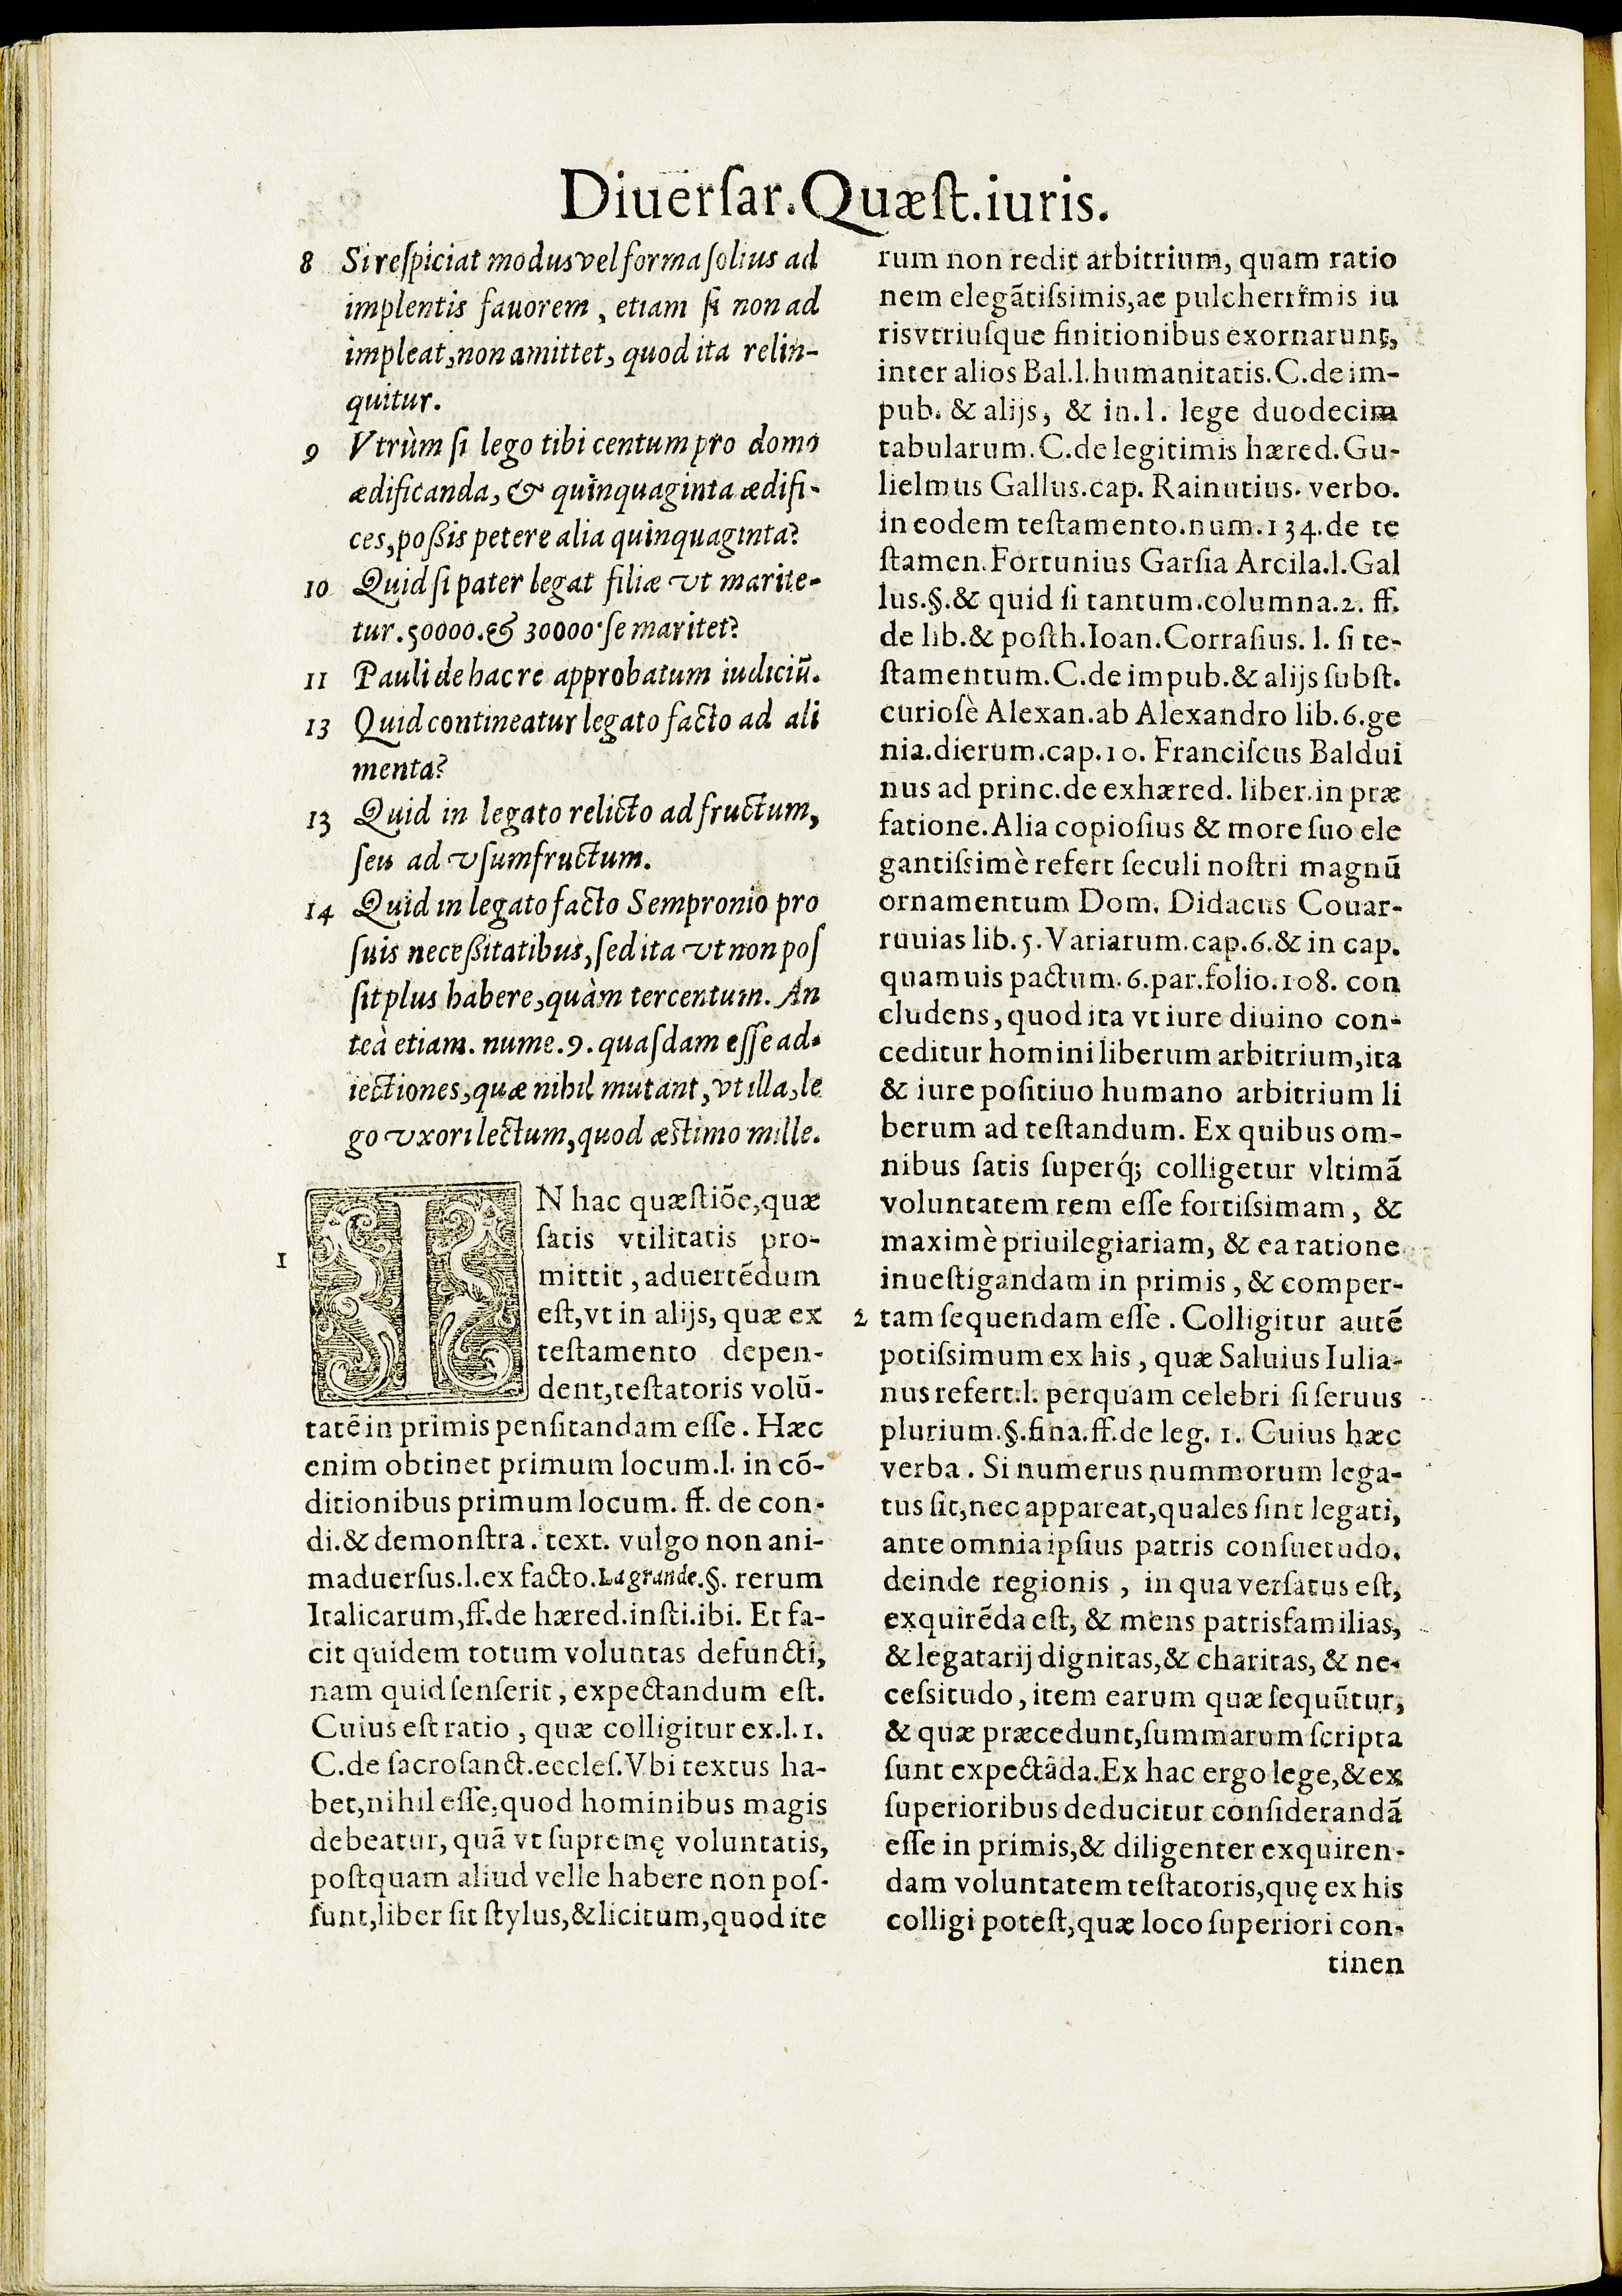 Diuerſar.Quæſt.iuris.
8 Si reſpiciat modus vel forma ſolius ad
implentis fauorem, etiam ſi non ad
impleat, non amittet, quod ita relin-
quitur.
9 Vtrùm ſi lego tibi centum pro domo
ædificanda, & quinquaginta ædifi-
ces, poßis petere alia quinquaginta?
10 Quid ſi pater legat filiæ vt marite-
tur. 50000. & 30000. ſe maritet?
11 Pauli de hac re approbatum iudiciũ.
13 Quid contineatur legato facto ad ali
menta?
13 Quid in legato relicto ad fructum,
ſeu ad vſumfructum.
14 Quid in legato facto Sempronio pro
ſuis neceßitatibus, ſed ita vt non poſ
ſit plus habere, quàm tercentum. An
teà etiam. nume.9. quaſdam eſſe ad-
iectiones, quæ nihil mutant, vt illa, le
go vxori lectum, quod æstimo mille.
1
IN hac quæſtiõe, quæ
ſatis vtilitatis pro-
mittit, aduertẽdum
eſt, vt in alijs, quæ ex
teſtamento depen-
dent, teſtatoris volũ-
tatẽ in primis penſitandam eſſe. Hæc
enim obtinet primum locum.l. in cõ-
ditionibus primum locum. ff. de con-
di. & demonſtra. text. vulgo non ani-
maduerſus.l.ex facto.La grande.§. rerum
Italicarum, ff.de hæred.inſti.ibi. Et fa-
cit quidem totum voluntas defuncti,
nam quid ſenſerit, expectandum eſt.
Cuius eſt ratio, quæ colligitur ex.l.1.
C.de ſacroſanct.eccleſ.Vbi textus ha-
bet, nihil eſſe, quod hominibus magis
debeatur, quã vt ſupremę voluntatis,
poſtquam aliud velle habere non poſ-
ſunt, liber ſit ſtylus, & licitum, quod ite
rum non redit arbitrium, quam ratio
nem elegãtiſsimis, ac pulcherrimis iu
ris vtriuſque finitionibus exornarunt,
inter alios Bal.l.humanitatis.C.de im-
pub. & alijs, & in.l. lege duodecim
tabularum.C.de legitimis hæred.Gu-
lielmus Gallus.cap. Rainutius. verbo.
in eodem teſtamento.num.134.de te
ſtamen.Fortunius Garſia Arcila.l.Gal
lus.§.& quid ſi tantum.columna.2. ff.
de lib.& poſth.Ioan.Corraſius. l. ſi te-
ſtamentum.C.de impub.& alijs ſubſt.
curioſè Alexan.ab Alexandro lib.6.ge
nia.dierum.cap.10. Franciſcus Baldui
nus ad princ.de exhæred. liber.in præ
fatione.Alia copioſius & more ſuo ele
gantiſsimè refert ſeculi noſtri magnũ
ornamentum Dom. Didacus Couar-
ruuias lib.5.Variarum.cap.6.& in cap.
quamuis pactum.6.par.folio.108. con
cludens, quod ita vt iure diuino con-
ceditur homini liberum arbitrium, ita
& iure poſitiuo humano arbitrium li
berum ad teſtandum. Ex quibus om-
nibus ſatis ſuperq́; colligetur vltimã
voluntatem rem eſſe fortiſsimam, &
maximè priuilegiariam, & ea ratione
inueſtigandam in primis, & comper-
2 tam ſequendam eſſe. Colligitur autẽ
potiſsimum ex his, quæ Saluius Iulia-
nus refert.l. perquam celebri ſi ſeruus
plurium.§.fina.ff.de leg. 1. Cuius hæc
verba. Si numerus nummorum lega-
tus ſit, nec appareat, quales ſint legati,
ante omnia ipſius patris conſuetudo,
deinde regionis, in qua verſatus eſt,
exquirẽda eſt, & mens patrisfamilias,
& legatarij dignitas, & charitas, & ne-
ceſsitudo, item earum quæ ſequũtur,
& quæ præcedunt, ſummarum ſcripta
ſunt expectãda.Ex hac ergo lege, & ex
ſuperioribus deducitur conſiderandã
eſſe in primis, & diligenter exquiren-
dam voluntatem teſtatoris, quę ex his
colligi poteſt, quæ loco ſuperiori con-
tinen